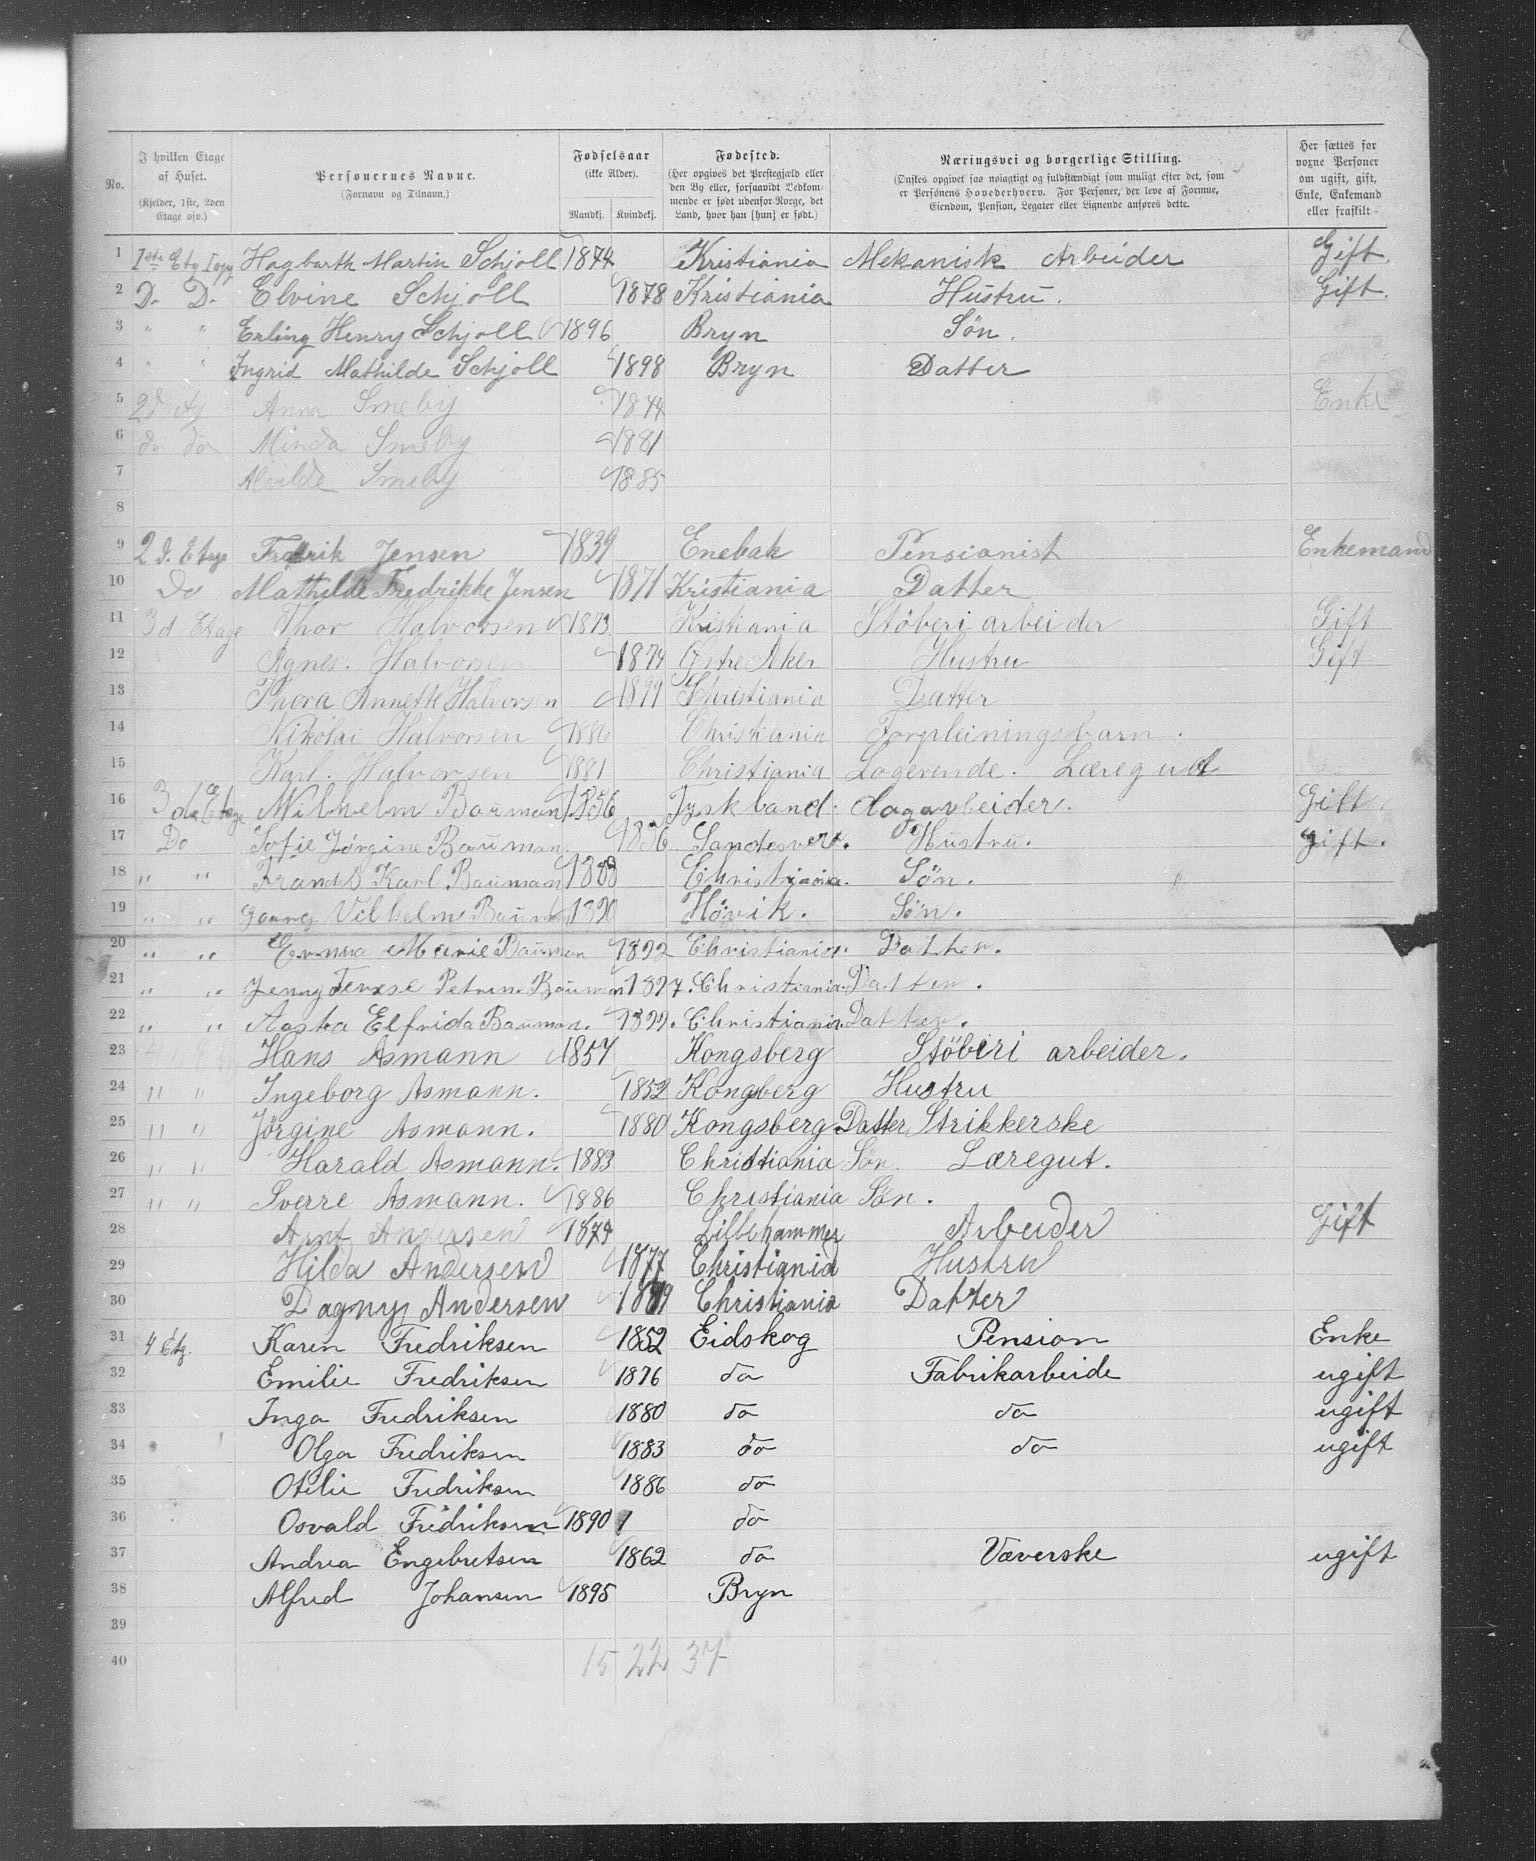 No. | I hvilken Etage af Huset. (Kjelder, 1ste, 2den Etage osv.) | Personernes Navne. (Fornavn og Tilnavn.) | Fødselsaar (ikke Alder). Mandkj. Kvindekj. | Fødested. (Her opgives det Prestegjæld eller den By eller, forsaavidt Vedkommende er født udenfor Norge, det Land, hvor han [hun] er født.) | Næringsvei og borgerlige Stilling. (Ønskes opgivet saa nøiagtigt og fuldstændigt som muligt efter det, som er Personens Hovederhverv. For Personer, der leve af Formue, Eiendom, Pension, Legater eller Lignende anføres dette. | Her sættes for voxne Personer om ugift, gift, Enke, Enkemand eller fraskilt
1 1ste Etg Hagbarth Martin Schjoll 1874 Kristiania Mekanisk Arbeider Gift.
2 Do Do Elvine Schjoll 1878 Kristiania Hustru. Gift.
3 " " Erling Henry Schjoll 1896 Bryn Søn.
4 " " Ingrid Mathilde Schjoll 1898 Bryn Datter
5 2d Etg Anna Smeby 1844 Enke
6 do do Minda Smeby 1881
7 Alvilde Smeby 1885
8
9 2 d. Etag Fredrik Jensen 1839 Enebak Pensionist Enkemand
10 Do Mathilde Fredrikke Jensen 1871 Kristiania Datter
11 3d Etage Thor Halvorsen 1873 Kristiania Støberiarbeider Gift
12 Agnes. Halvorsen 1874 Østre Aker Hustru Gift
13 Thora Annette Halvorsen 1899 Christiania Datter
14 Nikolai Halvorsen 1886 Christiania Forpleiningsbarn.
15 Karl. Halvorsen 1881 Christiania Logerende. Læregut
16 3die Etage Wilhelm Bauman 1856 Tyskland. dagarbeider. Gift
17 Do Sofie Jørgine Bauman. 1856 Sandesver. Hustru. gift.
18 " " Frants Karl Bauman 1888 Christiania. Søn.
19 " " Georg Vilhelm Bauman 1890 Høvik. Søn.
20 " " Emma Marie Bauman 1892 Christiania. Datter.
21 " " Jenny Terese Petrine Bauman 1897. Christiania. Datter.
22 " " Aasta Elfrida Bauman. 1899. Christiania. Datter.
23 Hans Asmann 1857 Kongsberg Støberi arbeider.
24 " " Ingeborg Asmann. 1852 Kongsberg Hustru
25 " " Jørgine Asmann. 1880 Kongsberg Datter, Strikkerske
26 " " Harald Asmann. 1883 Christiania Søn. Læregut.
27 " " Sverre Asmann. 1886 Christiania Søn.
28 Arnt Andersen 1874 Lillehammer Arbeider Gift
29 Hilda Andersen 1877 Christiania Hustru
30 Dagny Andersen 1899 Christiania Datter
31 4 Etg. Karen Fredriksen 1852 Eidskog Pension Enke
32 Emilie Fredriksen 1876 do Fabrikarbeide ugift
33 Inga Fredriksen 1880 do do ugift
34 Olga Fredriksen 1883 do do ugift
35 Otilie Fredriksen 1886 do
36 Osvald Fredriksen 1890 do
37 Andrea Engebretsen 1862 do Væverske ugift
38 Alfred Johansen 1895 Bryn
39
40 15 22 37